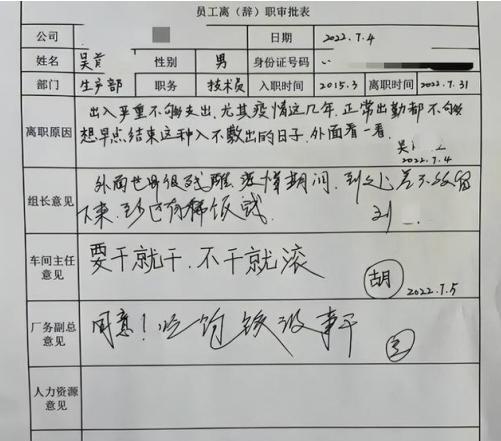 员工离（辞）职审批表
公司 日期 2022.7.4
姓名 吴 性别 男 身份证号码
部门 生产部 职务 技术员 入职时间 2015.3 离职时间 2022.7.31
离职原因 出入严重不够支出,尤其疫情这几年,正常出勤都不够
想早点结束这种入不敷出的日子,外面看一看.
吴
2022.7.4
组长意见 外面世界很残酷 疫情期间,到处差不
下来,至少还有稀饭
刘
车间主任意见 要干就干,不干就滚
胡 2022.7.5
厂务副总意见 同意!吃饱 没事干
人力资源意见